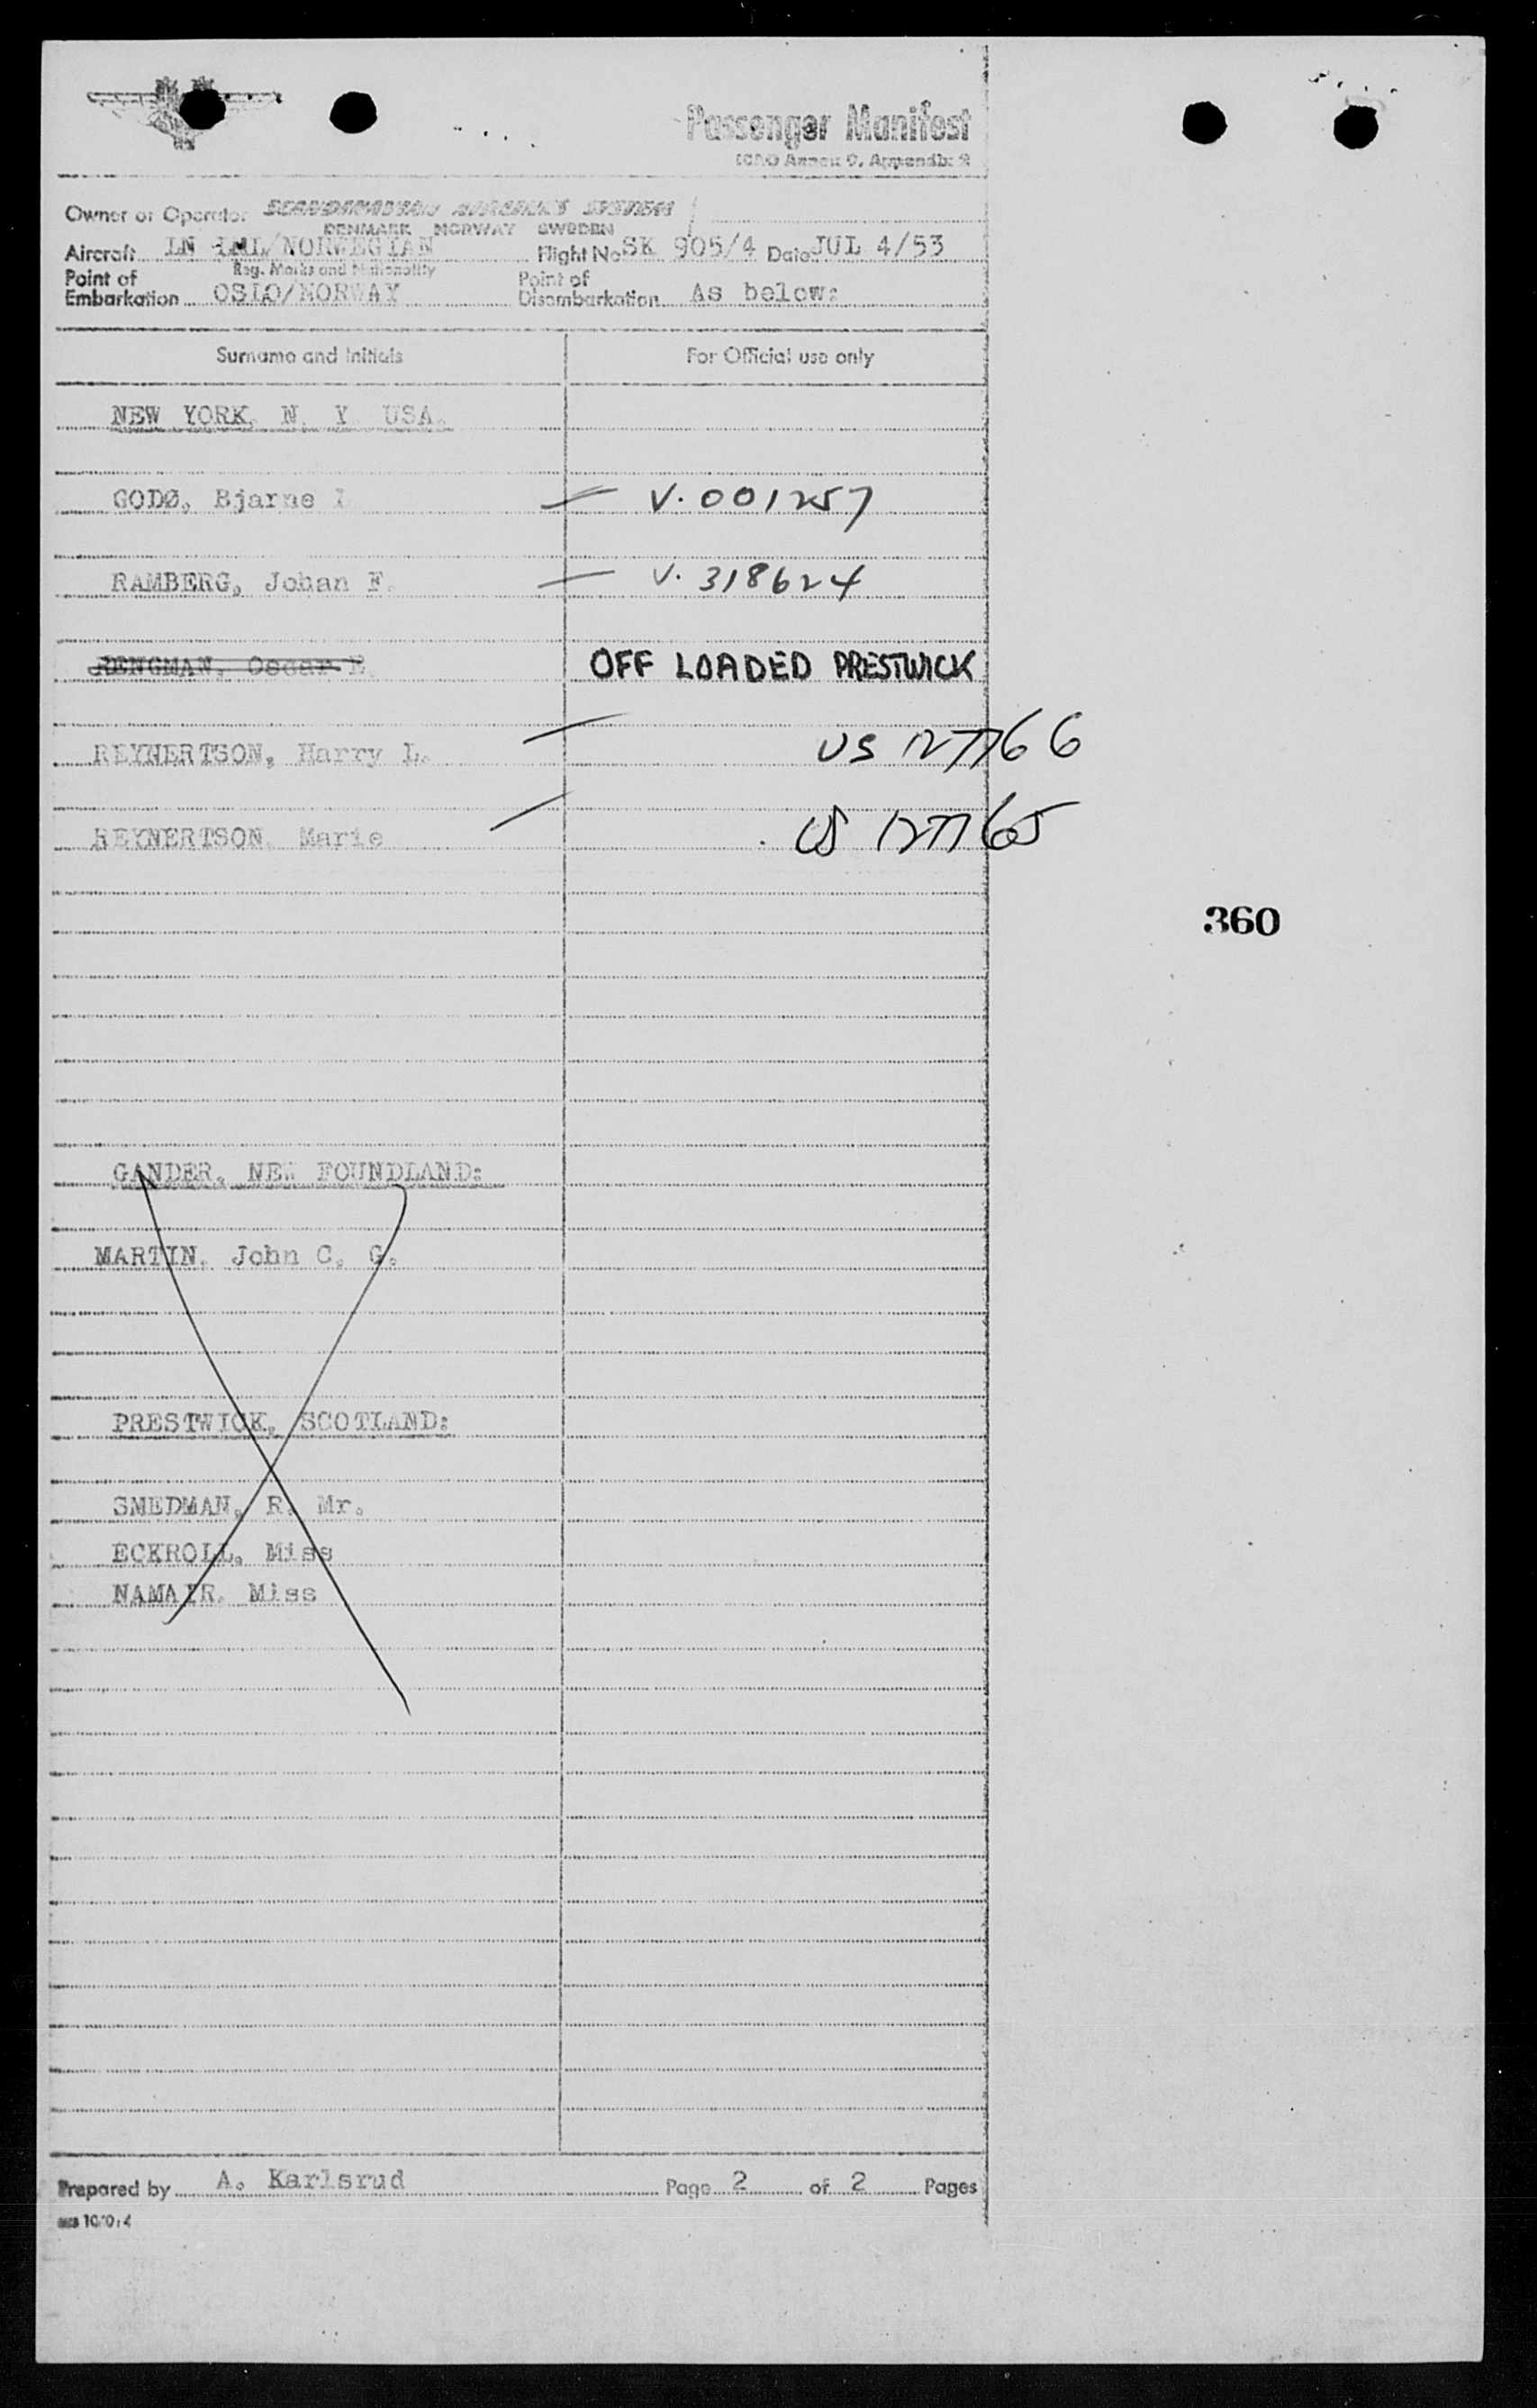 Passenger Manifest
ICAO Annex 9, Appendix 2
Owner or Operator SCANDINAVIAN AIRLINES SYSTEM
DENMARK NORWAY SWEDEN
Aircraft LN /NORWEGIAN Flight No SK 905/4 Date JUL 4/53
Reg. Marks and Nationality
Point of Embarkation OSLO/NORWAY Point of Disembarkation As below:
Surname and Initials For Official use only
NEW YORK, N. Y. USA.
GODØ, Bjarne V. 001257
RAMBERG, Johan F. V. 318624
Oscar OFF LOADED PRESTWICK
REYNERTSON, Harry L. US 127766
REYNERTSON, Marie US 127765
360
GANDER, NEW FOUNDLAND:
MARTIN, John C. G.
PRESTWICK, SCOTLAND:
SMEDMAN, R. Mr.
ECKROLL, Miss
NAMAIR, Miss
Prepared by A. Karlsrud Page 2 of 2 Pages